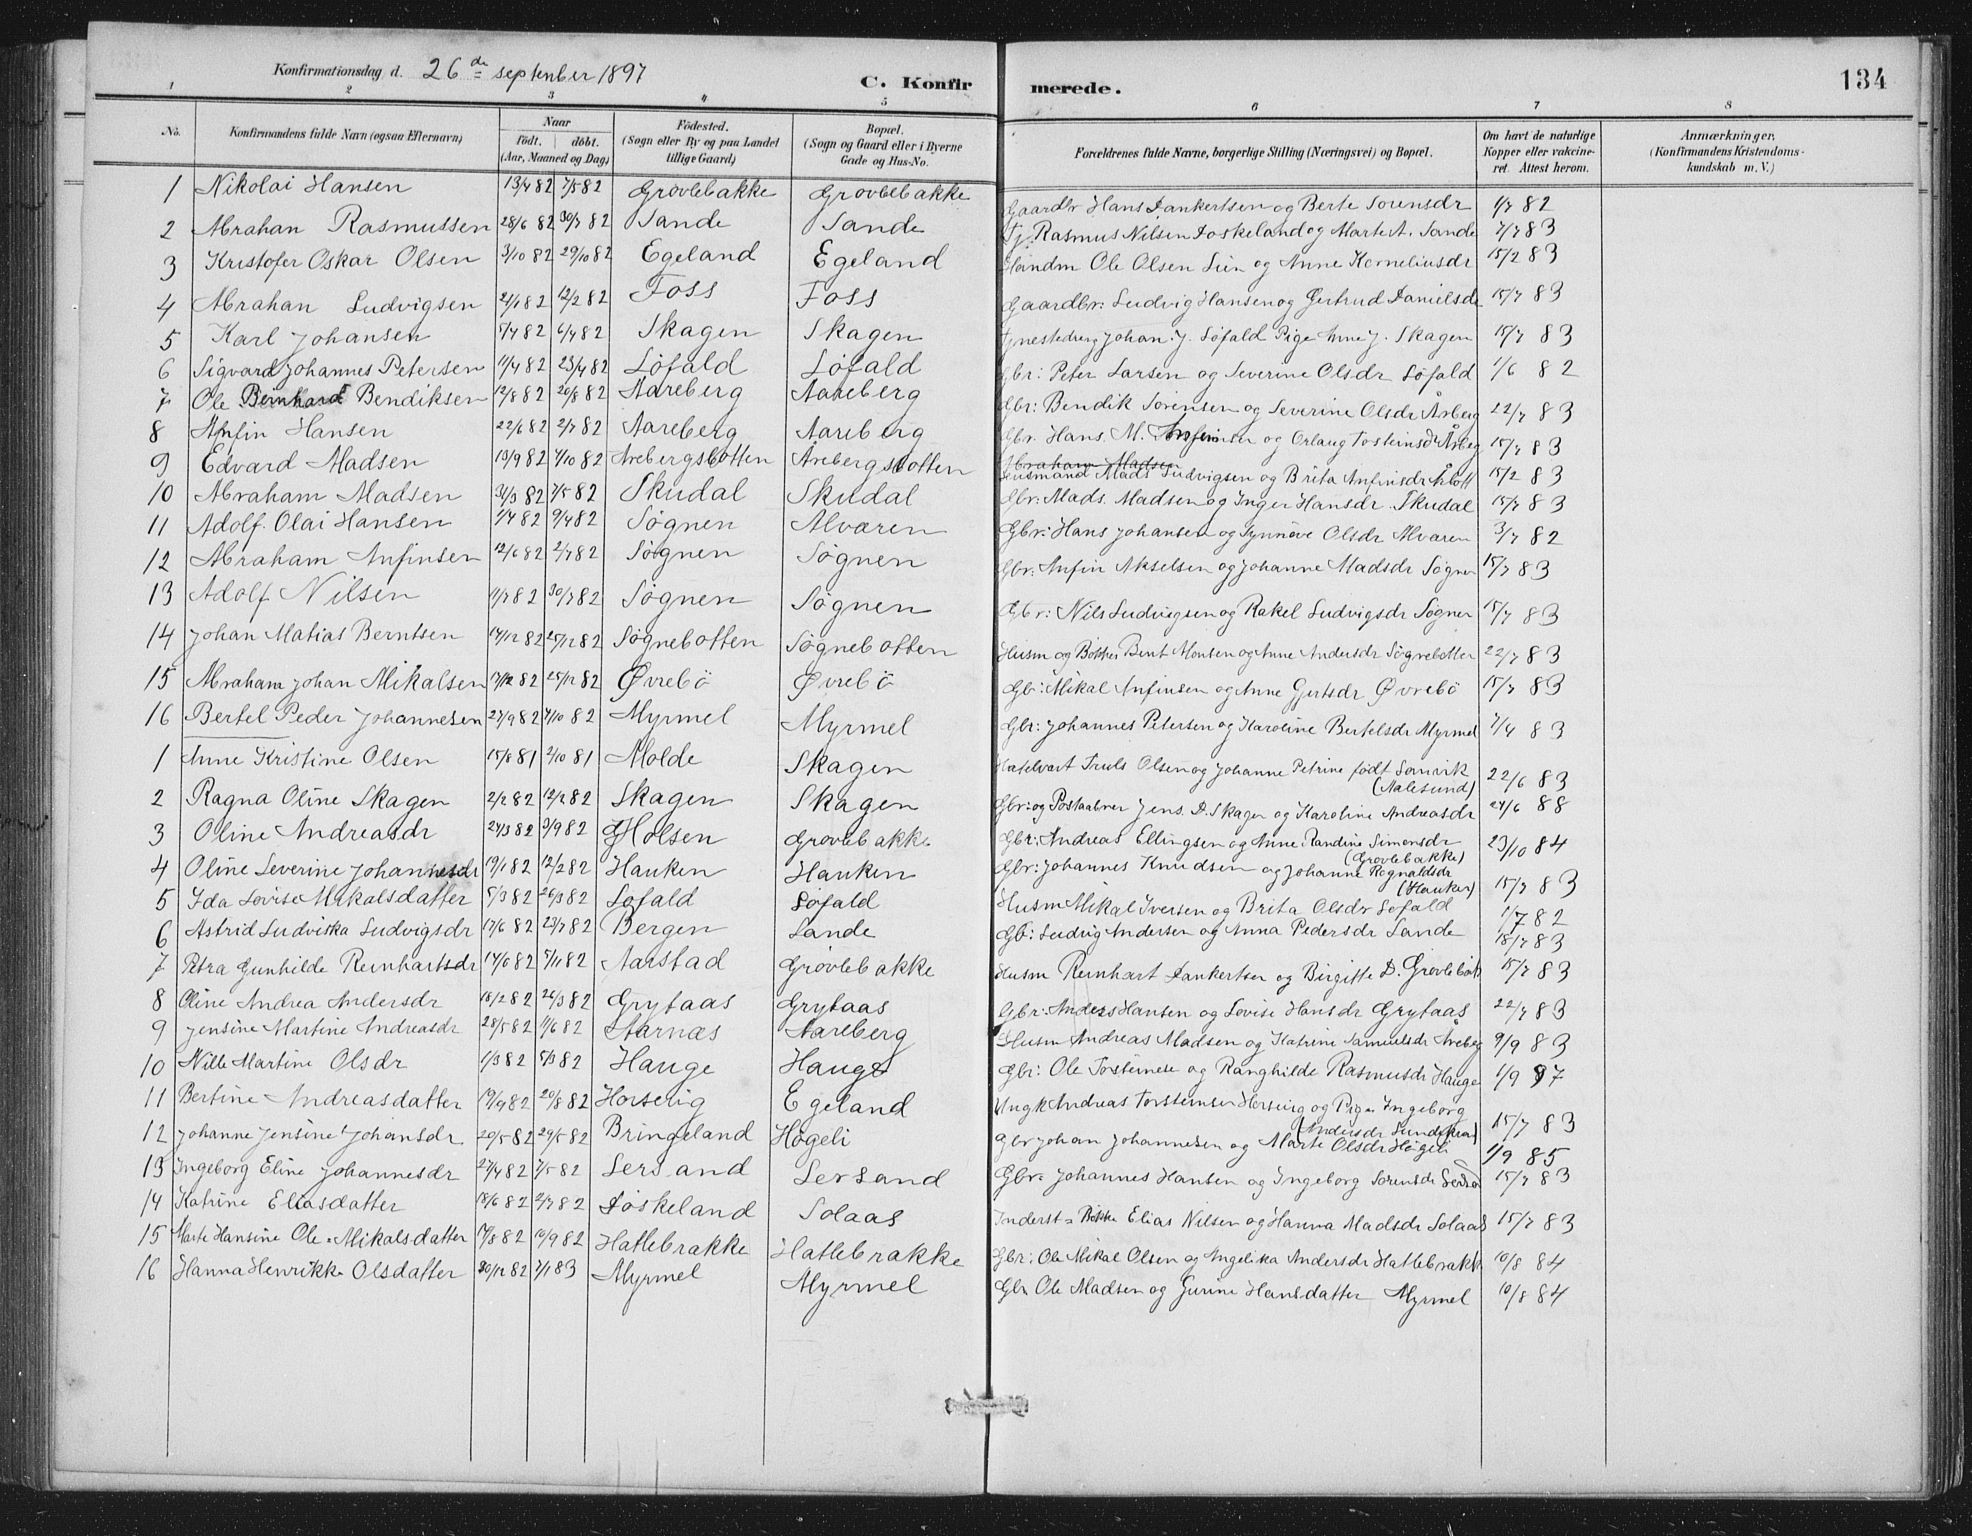 Konfirmationsdag d. 26de september 1897 C. Konfirmerede. 134
1 2 3 4 5 6 7 8
No. Konfirmandens fulde Navn (ogsaa Efternavn) Naar født. døbt. (Aar, Maaned og Dag) Fødested. (Sogn eller By og paa Landet tillige Gaard) Bopæl. (Sogn og Gaard eller i Byerne Gade og Hus-No. Forældrenes fulde Navne, borgerlige Stilling (Næringsvei) og Bopæl. Om havt de naturlige Kopper eller vakcineret. Attest herom. Anmærkninger. (Konfirmandens Kristendomskundskab m. V.)
1 Nikolai Hansen 13/4 82 7/5 82 Grovlebakke Grovlebakke Gaardbr Hans Dankertsen og Berte Sorensdr 1/7 82
2 Abrahan Rasmussen 28/6 82 30/7 82 Sande Sande Tj. Rasmus Nilsen Doskeland og Marte A. Sande 7/7 83
3 Kristofer Oskar Olsen 3/10 82 29/10 82 Egeland Egeland Handm Ole Olsen Lien og Anne Korneliusdr 15/2 83
4 Abrahan Ludvigsen 21/1 82 12/2 82 Foss Foss Gaardbr: Ludvig Hansen og Gertrud Danielsdr 15/7 83
5 Karl Johansen 5/4 82 6/4 82 Skagen Skagen Tjenestedreng Johan J. Søfald Pige Anne J. Skagen 15/7 83
6 Sigvard Johannes Petersen 11/4 82 23/4 82 Løfald Løfald Gbr: Peter Larsen og Severine Olsdr Løfald 1/6 82
7 Ole Bernhard Bendiksen 12/8 82 20/8 82 Aareberg Aareberg Gbr: Bendik Sørensen og Severine Olsdr Årberg 22/7 83
8 Anfin Hansen 22/6 82 2/7 82 Aareberg Aareberg Gbr. Hans. M. Anfinsen og Orlaug Tosteinsdr Årberg 15/7 83
9 Edvard Madsen 13/9 82 1/10 82 Arebergsbotten Arebergsbotten Husmand Mads Ludvigsen og Brita Anfinsdr Årbott 15/2 83
10 Abraham Madsen 31/3 82 7/5 82 Skudal Skudal Gbr: Mads. Madsen og Inger Hansdr. Skudal 15/7 83
11 Adolf Olai Hansen 1/4 82 9/4 82 Søgnen Alværen Gbr: Hans Johansen og Synnøve Olsdr Alvaren 3/7 82
12 Abraham Anfinsen 12/6 82 2/7 82 Søgnen Søgnen Gbr: Anfin Akselsen og Johanne Madsdr Søgnen 15/7 83
13 Adolf Nilsen 11/7 82 30/7 82 Søgnen Søgnen Gbr: Nils Ludvigsen og Rakel Ludvigsdr Søgnen 15/7 83
14 Johan Matias Berntsen 14/12 82 25/12 82 Søgnebotten Søgnebotten Husm og Bøkker Bent Monsen og Anne Andersdr Søgnebotten 22/7 83
15 Abraham Johan Mikalsen 17/12 82 25/12 82 Øvrebö Øvrebö Gb: Mikal Anfinsen og Anne Gjertsdr Øvrebö 15/7 83
16 Bertel Peder Johannesen 27/9 82 1/10 82 Myrmel Myrmel Gbr: Johannes Petersen og Karoline Bertelsdr Myrmel 7/4 83
1 Anne Kristine Olsen 15/8 81 2/10 81 Molde Skagen Truls Olsen og Johanne Petrine født Sonvik (Aalesund) 22/6 83
2 Ragna Oline Skagen 2/2 82 12/2 82 Skagen Skagen Gbr: og Postaabner Jens. D. Skagen og Karoline Andreasdr 24/6 88
3 Oline Andreasdr 24/3 82 3/9 82 Holsen Grovlebakke Gbr: Andreas Ellingsen og Anne Randine Simonsdr (Grovlebakke) 23/10 84
4 Oline Severine Johannesdr 19/1 82 12/2 82 Hauken Hauken Gbr: Johannes Knudsen og Johanne Rognaldsdr (Hauken) 15/7 83
5 Ida Lovise Mikalsdatter 5/3 82 26/3 82 Løfald Løfald Husm Mikal Iversen og Brita Olsdr Løfald 1/7 82
6 Astrid Ludviska Ludvigsdr 17/6 82 23/7 82 Bergen Sande Gb: Ludvig Andersen og Anna Pedersdr Sande 18/7 83
7 Petra Gunhilde Reinhartsdr 14/10 82 5/11 82 Aarstad Grovlebakke Husm Reinhart Dankertsen og Birgitte D. Grovlebak 15/7 83
8 Oline Andrea Andersdr 18/2 82 26/3 82 Grytaas Grytaas Gbr: Anders Hansen og Lovise Hansdr Grytaas 22/7 83
9 Jensine Martine Andreasdr 28/5 82 11/6 82 Starnæs Aareberg Husm Andreas Madsen og Katrine Samuelsdr Areberg 9/9 83
10 Nille Martine Olsdr 1/3 82 5/3 82 Hauge Hauge Gbr: Ole Torsteinsen og Ranghilde Rasmusdr Hauge 1/9 97
11 Bertine Andreasdatter 19/9 82 20/8 82 Horsevig Egeland Ungk Andreas Torsteinsen Horsevig og Pige Ingeborg Andersdr 15/7 83
12 Johanne Jensine Johansdr 20/5 82 29/5 82 Bringeland Høgeli Gbr Johan Johannesen og Marte Olsdr Høgeli 1/9 85
13 Ingeborg Eline Johannesdr 27/4 82 7/5 82 Lersand Lersand Gbr: Johannes Hansen og Ingeborg Sorensdr 15/7 83
14 Katrine Eliasdatter 18/6 82 2/7 82 Doskeland Solaas Inderst = Bøkker Elias Nilsen og Hanna Madsdr Solaas 15/7 83
15 Marte Hansine Ole=Mikalsdatter 17/8 82 10/9 82 Hatlebrakke Hatlebrakke Gbr: Ole Mikal Olsen og Angelika Andersdr Hatlebrakk 10/8 84
16 Hanna Henrikke Olsdatter 20/12 82 7/1 83 Myrmel Myrmel Gbr Ole Madsen og Gurine Hansdatter Myrmel 10/8 84